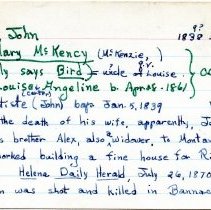 , John 1838 -
Mary McKency (McKenzie,
ly says Bird = uncle of Louise.
Louisa Angeline b. Apr 26 - 1861
tiste (John) baps Jan. 5, 1839
the death of his wife, apparently, Jo
s brother Alex, also a widower, to Montan
worked building a fine house for Ri
Helena Daily Herald, July 26, 1870
n was shot and killed in Bannac